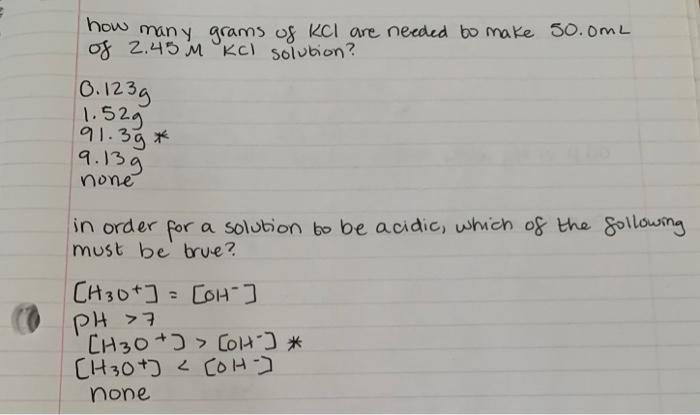 how many grams of KCl are needed to make 50.0mL
of 2.45 M KCl solution?
0.123g
1.52g
91.3g *
9.13g
none
in order for a solution to be acidic, which of the following
must be true?
[H3O+] = [OH-]
pH >7
[H3O+] > [OH-] *
[H3O+] < [OH-]
none